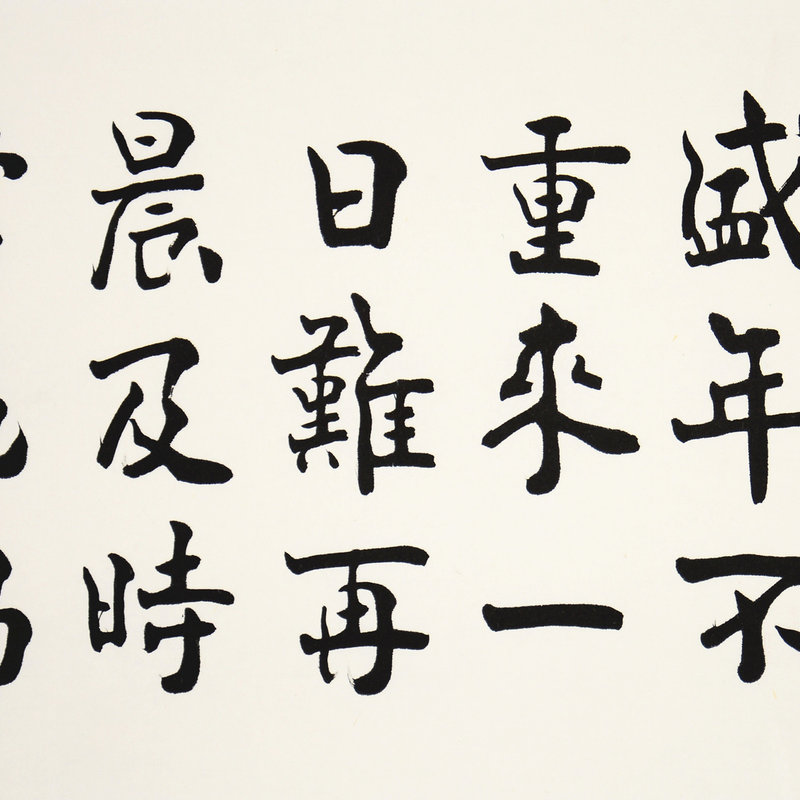 盛年不
重來一
日難再
晨及時
當勉勵